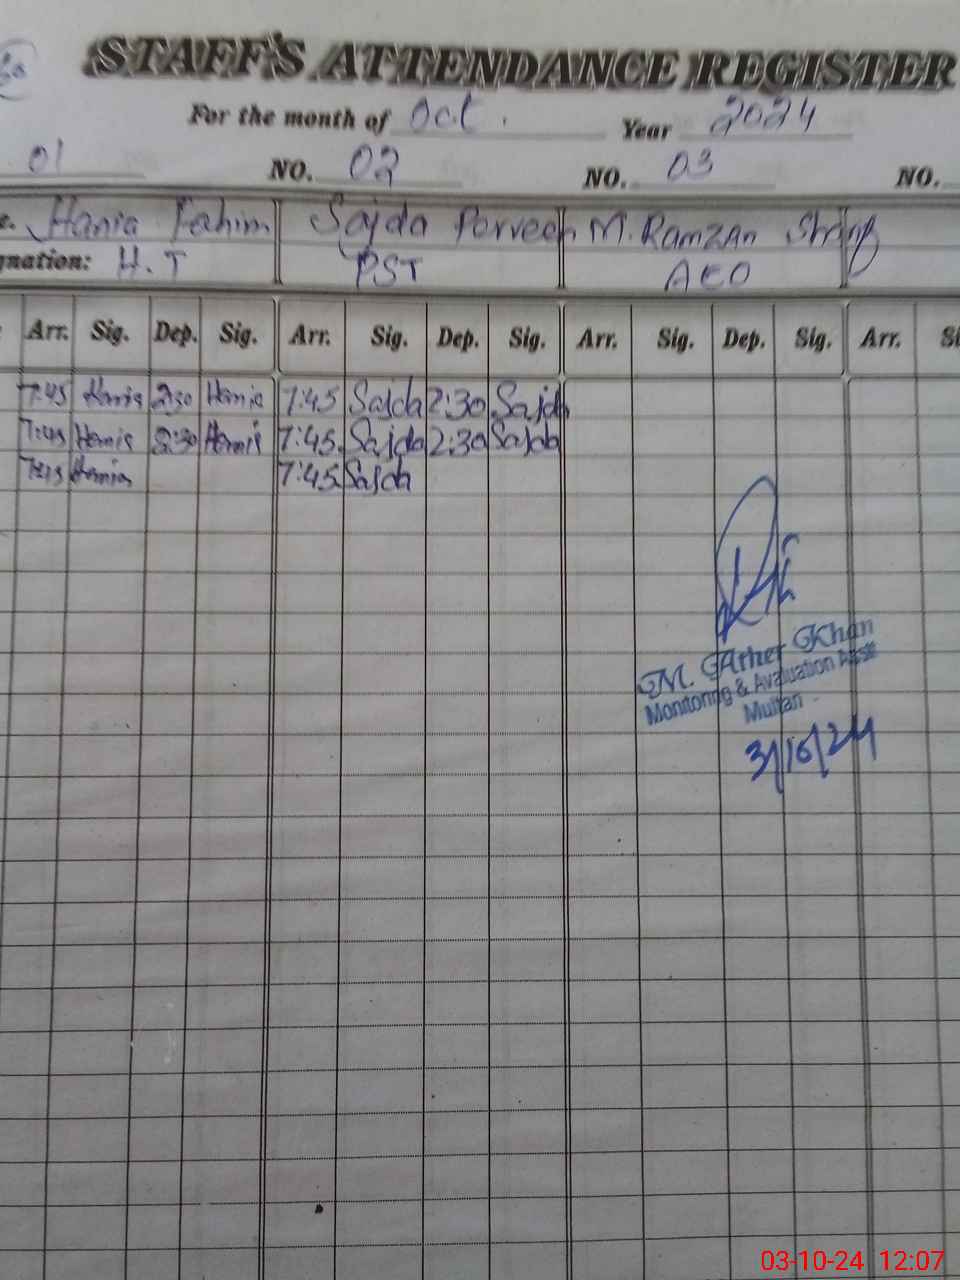 STAFF'S ATTENDANCE REGISTER
For the month of Oct. Year 2024
01 NO. 02 NO. 03 NO.
Hania Fahim Sajda Parveen M. Ramzan
gnation: H.T PST AEO
Arr. Sig. Dep. Sig. Arr. Sig. Dep. Sig. Arr. Sig. Dep. Sig. Arr. Si
7:45 Hania 2:30 Hania 7:45 Sajda 2:30 Sajda
7:45 Hania 2:30 Hania 7:45 Sajda 2:30 Sajda
7:45 Hania 7:45 Sajda
M. Ather Khan
Monitoring & Avaluation Asstt
Multan
3/10/24
03-10-24 12:07